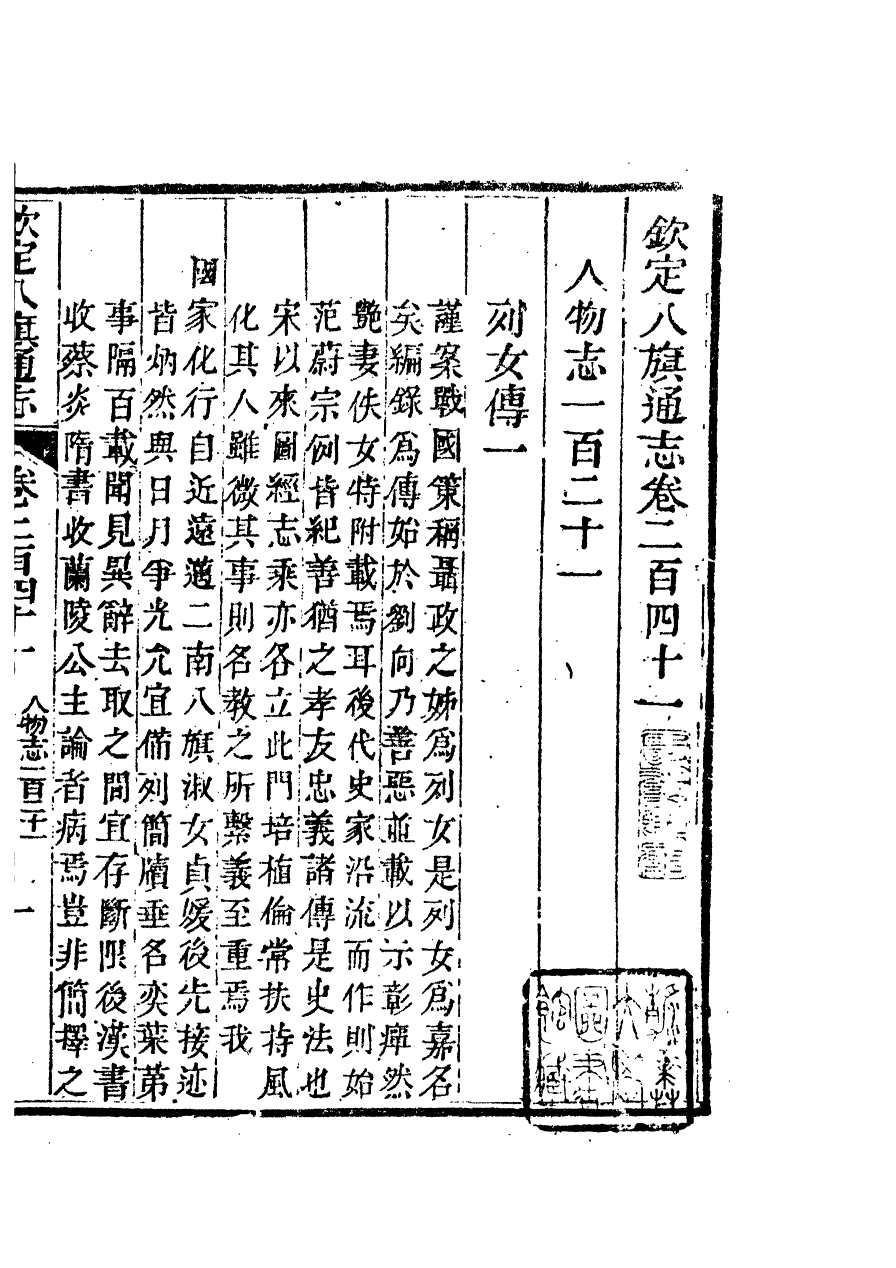 欽定八旗通志卷二百四十一
人物志一百二十一
列女傳一
謹案戰國策稱聶政之姊爲列女是列女爲嘉名
矣編錄爲傳始於劉向乃善惡並載以示彰癉然
艷妻佚女特附載焉耳後代史家沿流而作則始
范蔚宗例皆紀善猶之孝友忠義諸傳是史法也
宋以來圖經志乘亦各立此門培植倫常扶持風
化其人雖微其事則名教之所繫義至重焉我
國家化行自近遠邁二南八旗淑女貞媛後先接迹
皆炳然與日月爭光允宜備列簡牘垂名奕葉第
事隔百載聞見異辭去取之間宜存斷限後漢書
收蔡炎隋書收蘭陵公主論者病焉豈非簡擇之
欽定八旗通志
卷二百四十一
人物志一百二十一
一